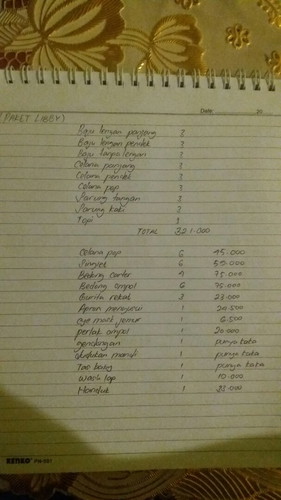 Date: 20
(PAKET LIBBY)
Baju lengan panjang 3
Baju lengan pendek 3
Baju tanpa lengan 3
Celana panjang 3
Celana pendek 3
Celana pop 3
Sarung tangan 3
Sarung kaki 3
Topi
TOTAL 321.000
Celana pop 6 45.000
6
Bedong carter 4 75.000
Bedong ompol 6 75.000
Gurita rekat 3 23.000
Apron menyusui 1 20.500
1 6.500
perlak ompol 1 20.000
gendongan 1 punya kaka
dudukan mandi 1 punya kaka
Tas bayi 1 punya kaka
Wash lap 1 10.000
Handuk 1 25.000
KENKO